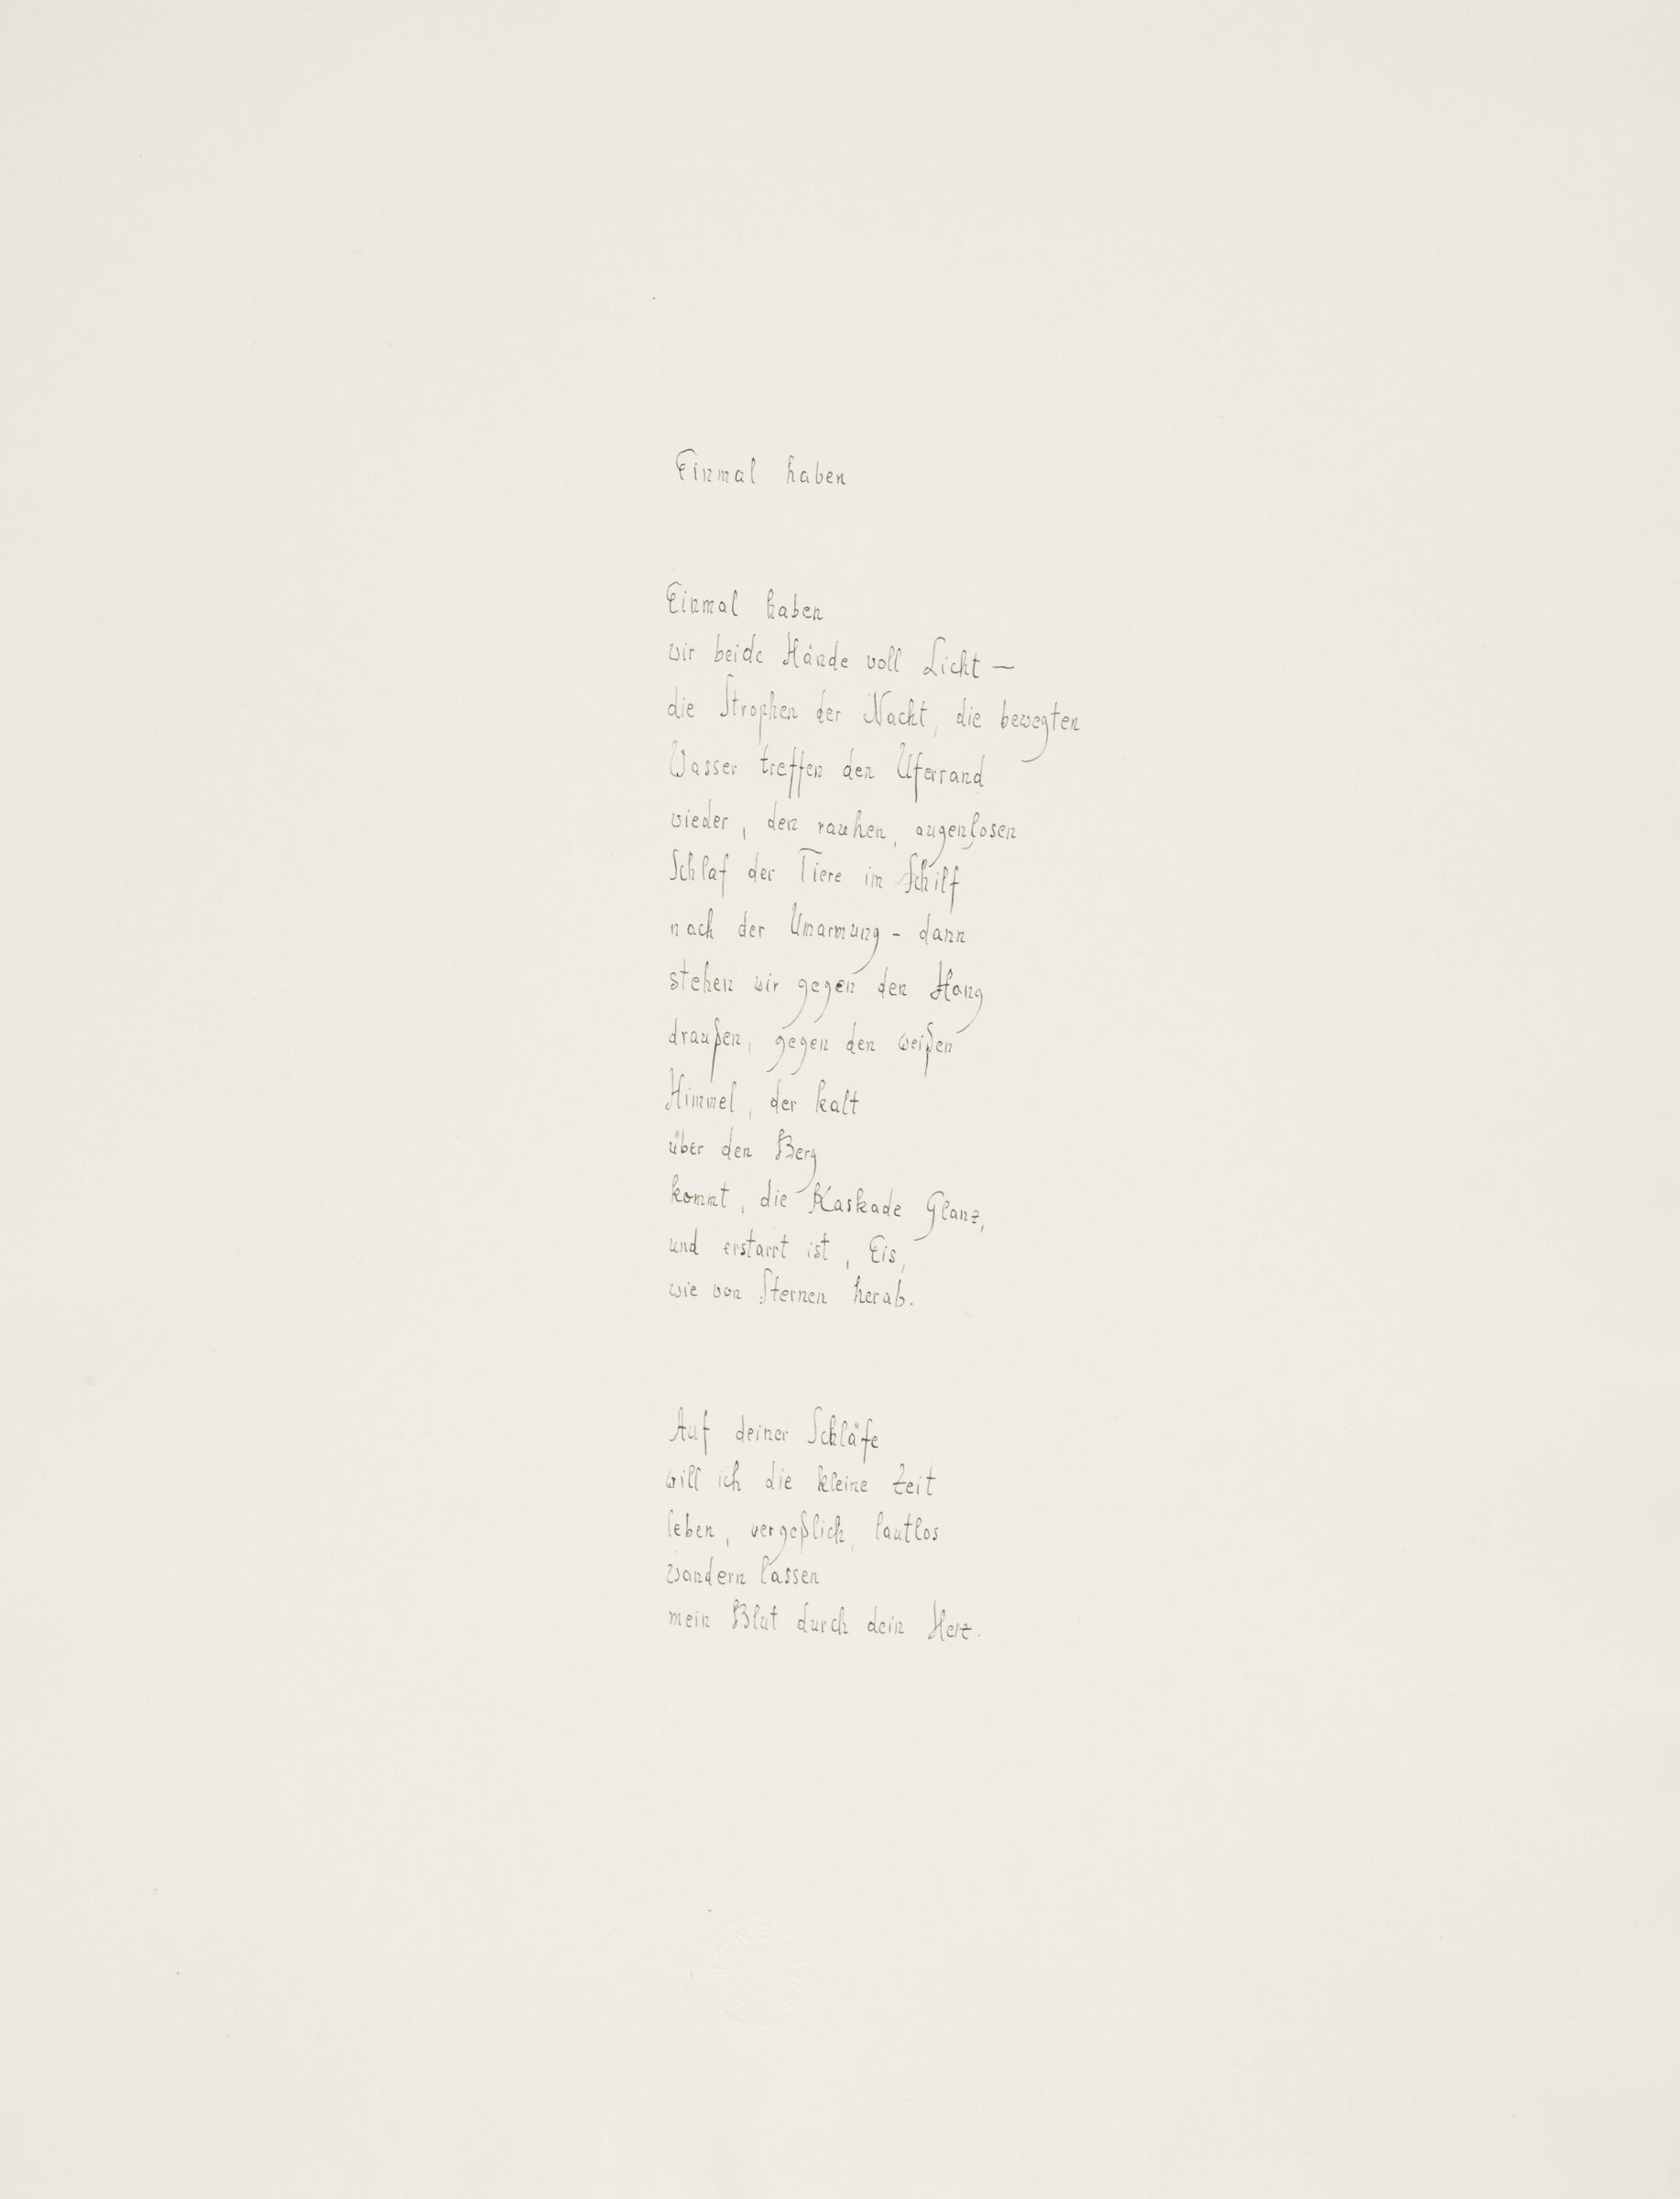 Einmal haben
Einmal haben
wir beide Hände voll Licht —
die Strophen der Nacht, die bewegten
Wasser treffen den Uferrand
wieder, den rauhen, augenlosen
Schlaf der Tiere im Schilf
nach der Umarmung – dann
stehen wir gegen den Hang
draußen, gegen den weißen
Himmel, der kalt
über den Berg
kommt, die Kaskade Glanz,
und erstarrt ist, Eis,
wie von Sternen herab.
Auf deiner Schläfe
will ich die kleine Zeit
leben, vergeßlich, lautlos
wandern lassen
mein Blut durch dein Herz.